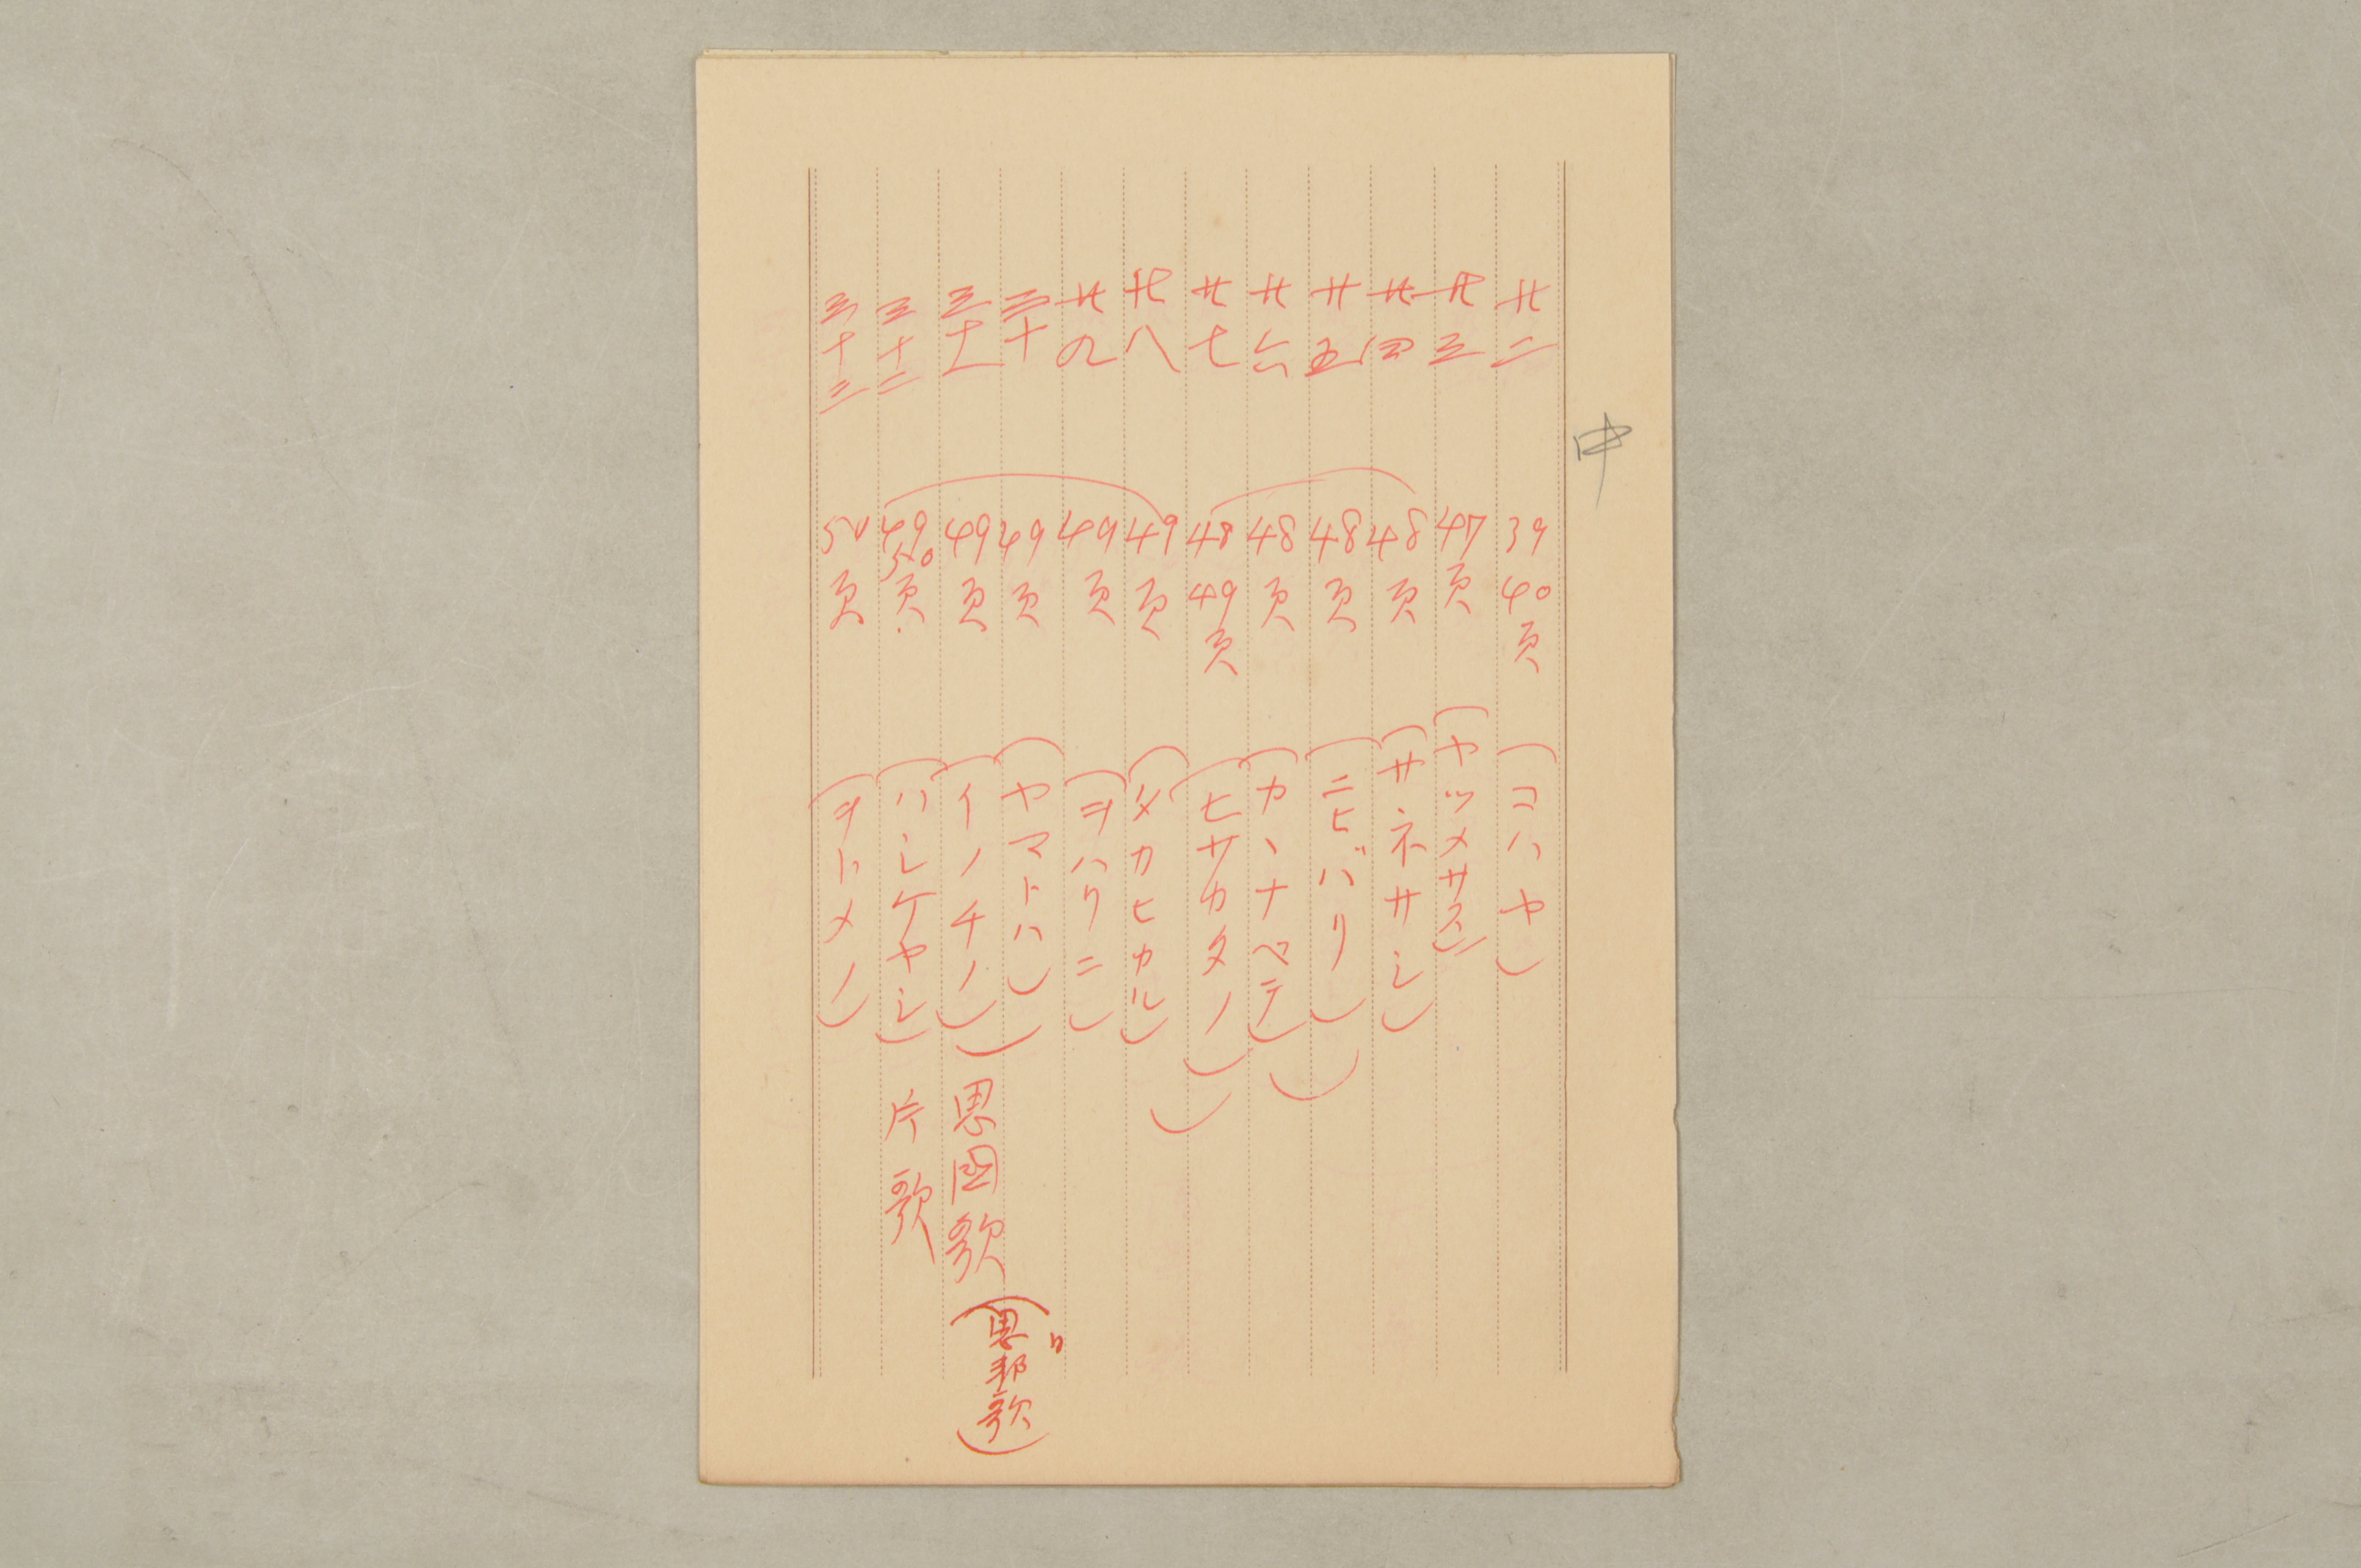 中
廿二 39 40頁 (コハヤ)
廿三 47頁 (ヤツメサス)
廿四 48頁 (サネサシ)
廿五 48頁 (ニヒバリ)
廿六 48頁 (カヽナベテ)
廿七 48 49頁 (ヒサカタノ)
廿八 49頁 (タカヒカル)
廿九 49頁 (ヲハリニ)
三十 49頁 (ヤマトハ)
三十一 49頁 (イノチノ) 思国歌 (思邦歌)
三十二 49 50頁 (ハシケヤシ) 片歌
三十三 50頁 (ヲトメノ)